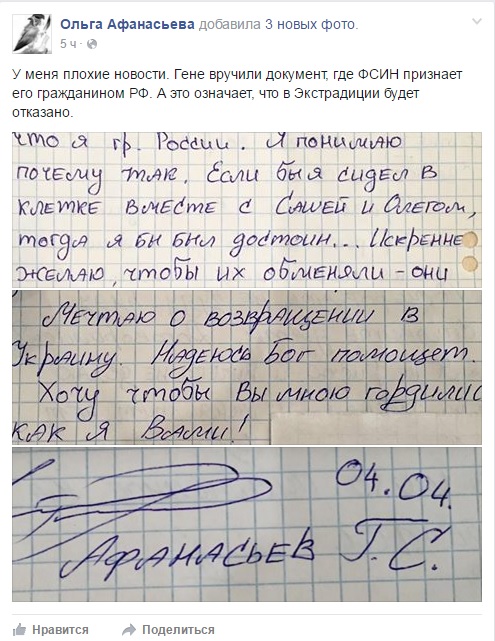 Ольга Афанасьева добавила 3 новых фото.
5 ч ·
У меня плохие новости. Гене вручили документ, где ФСИН признает
его гражданином РФ. А это означает, что в Экстрадиции будет
отказано.
что я гр. России. Я понимаю
почему так. Если бы я сидел в
клетке вместе с Сашей и Олегом,
тогда я бы был достоин... Искренне
желаю, чтобы их обменяли - они
Мечтаю о возвращении в
Украину. Надеюсь Бог помощет.
Хочу чтобы Вы мною гордились
как я Вами!
04.04.
Афанасьев Г.С.
Нравится Поделиться